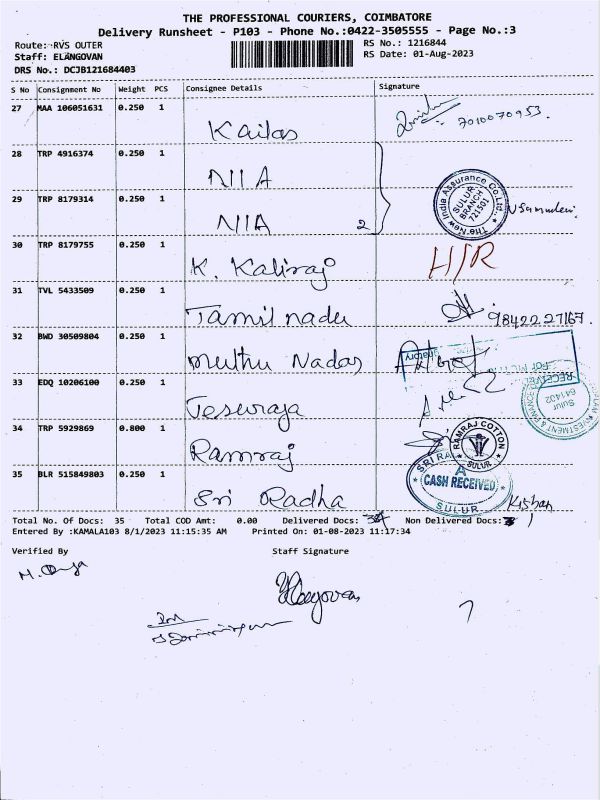 THE PROFESSIONAL COURIERS, COIMBATORE
Delivery Runsheet - P103 - Phone No.:0422-3505555 - Page No.:3
Route: RVS OUTER RS No.: 1216844
Staff: ELANGOVAN RS Date: 01-Aug-2023
DRS No.: DCJB121684403
S No Consignment No Weight PCS Consignee Details Signature
27 MAA 106051631 0.250 1
Kailas 7010070953.
28 TRP 4916374 0.250 1
NIIA
29 TRP 8179314 0.250 1
NIIA 2
The New India Assurance Co. Ltd., SULUR BRANCH 721501
30 TRP 8179755 0.250 1
K. Kaliraj H/R
31 TVL 5433509 0.250 1
Tamil nadu 98422 27167.
32 BWD 30509804 0.250 1
Muthu Nadas
RECEIVED
Sulur 641402
33 EDQ 10206100 0.250 1
Jesuraja
34 TRP 5929869 0.800 1
Ramraj
RAMRAJ COTTON SULUR
35 BLR 515849803 0.250 1
Sri Radha Kishan
CASH RECEIVED SULUR
Total No. Of Docs: 35 Total COD Amt: 0.00 Delivered Docs: 34 Non Delivered Docs: 1
Entered By :KAMALA103 8/1/2023 11:15:35 AM Printed On: 01-08-2023 11:17:34
Verified By Staff Signature